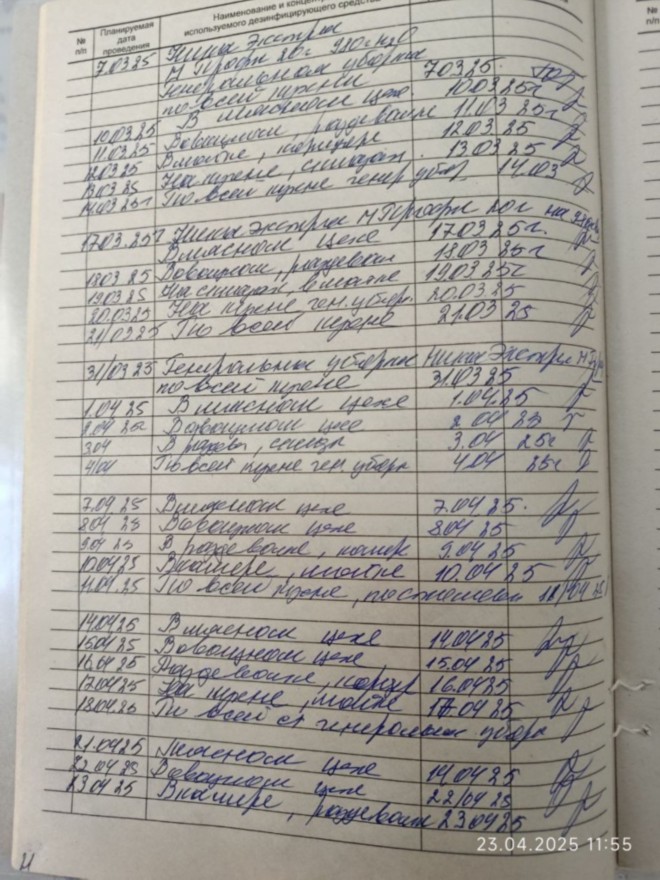 № п/п Планируемая дата проведения Наименование и
используемого дезинфицирующего
7.03.25 Ника Экстра
М Профи 20г на
Генеральная уборка
по всей кухни 7.03.25
10.03.25 В мясном цехе 10.03.25г
11.03.25 В овощном, раздевалке 11.03.25г
12.03.25 В мойке, коридоре 12.03.25
13.03.25 На кухне, складах 13.03.25
14.03.25г По всей кухне генер убор 14.03
17.03.25г Ника Экстра М Профи 20г на
В мясном цехе 17.03.25г.
18.03.25 В овощном, раздевал 18.03.25г
19.03.25 На складах в мойке 19.03.25г
20.03.25 На кухне ген. убор. 20.03.25
21/03.25 По всей кухне 21.03.25
31/03.25 Генеральная уборка Ника Экстра М
по всей кухне 31.03.25
1.04.25 В мясном цехе 1.04.25
2.04.25г В овощном цехе 2.04.25
3.04 В раздев, склада 3.04 25г
4/04 По всей кухне ген. уборк 4.04 25г
7.04.25 В мясном цехе 7.04.25.
8.04.25 В овощном цехе 8.04.25
9.04.25 В раздевалке, 9.04.25
10.04.25 В камере, мойке 10.04.25
11.04.25 По всей кухне, 11/04.25
14.04.25 В мясном цехе 14.04.25
15.04.25 В овощном цехе 15.04.25
16.04.25 Раздевалке, коридр 16.04.25
17.04.25 На кухне, мойке 17.04.25
18.04.25 По всей ст генеральная уборк
21.04.25 Мясном цехе
22.04.25 В овощном цехе 22/04.25
23.04.25 В камере, раздевалк 23.04.25
23.04.2025 11:55